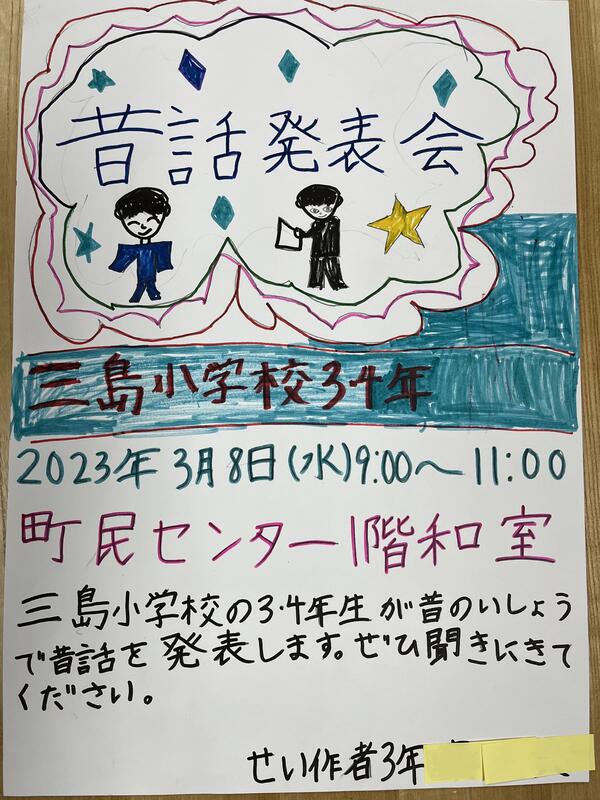 昔話発表会
三島小学校3・4年
2023年3月8日(水)9:00～11:00
町民センター1階和室
三島小学校の3・4年生が昔のいしょう
で昔話を発表します。ぜひ聞きにきて
ください。
せい作者3年